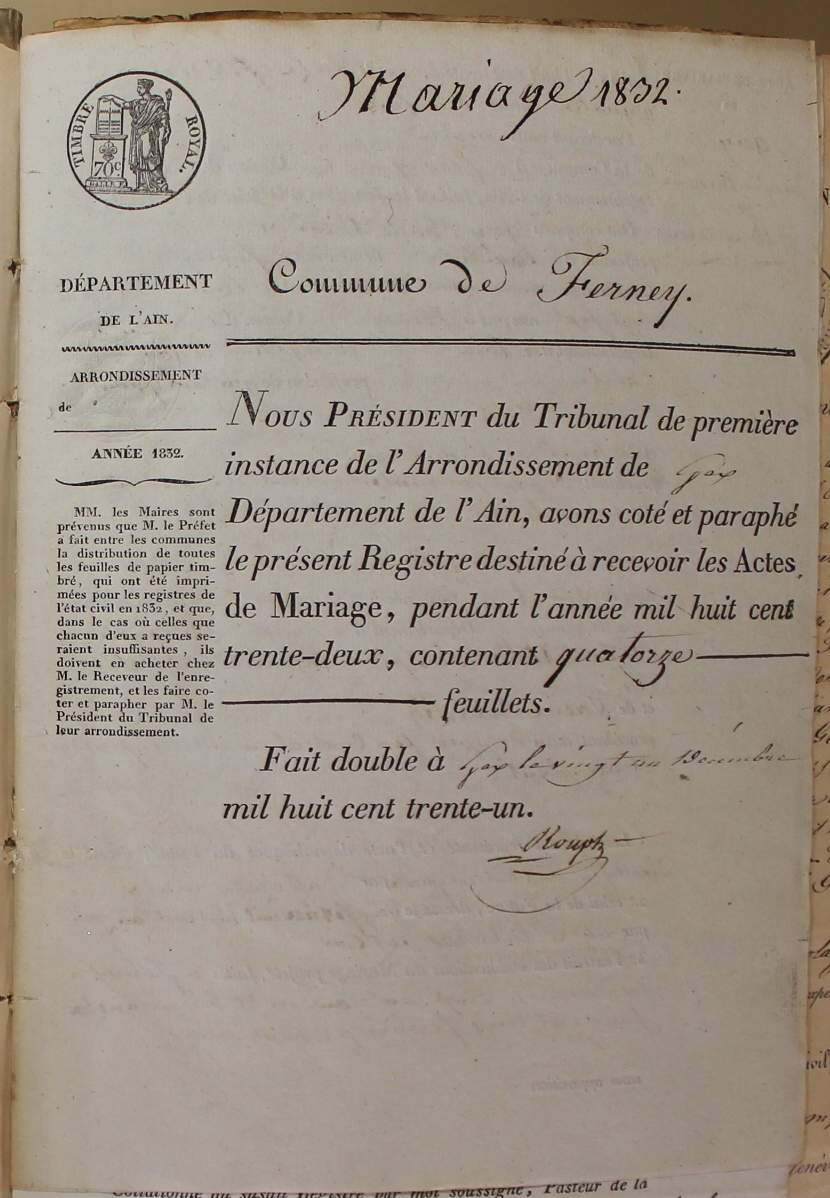 Mariage 1832.
TIMBRE ROYAL.
70c
DÉPARTEMENT
DE L'AIN.
ARRONDISSEMENT
de
ANNÉE 1832.
MM. les Maires sont
prévenus que M. le Préfet
a fait entre les communes
la distribution de toutes
les feuilles de papier tim-
bré, qui ont été impri-
mées pour les registres de
l'état civil en 1832, et que,
dans le cas où celles que
chacun d'eux a reçues se-
raient insuffisantes, ils
doivent en acheter chez
M. le Receveur de l'enre-
gistrement, et les faire co-
ter et parapher par M. le
Président du Tribunal de
leur arrondissement.
Commune de Ferney.
NOUS PRÉSIDENT du Tribunal de première
instance de l'Arrondissement de Gex
Département de l'Ain, avons coté et paraphé
le présent Registre destiné à recevoir les Actes
de Mariage, pendant l'année mil huit cent
trente-deux, contenant quatorze
feuillets.
Fait double à Gex le vingt un Décembre
mil huit cent trente-un.
Collationné au susdit Registre par moi soussigné, Pasteur de la